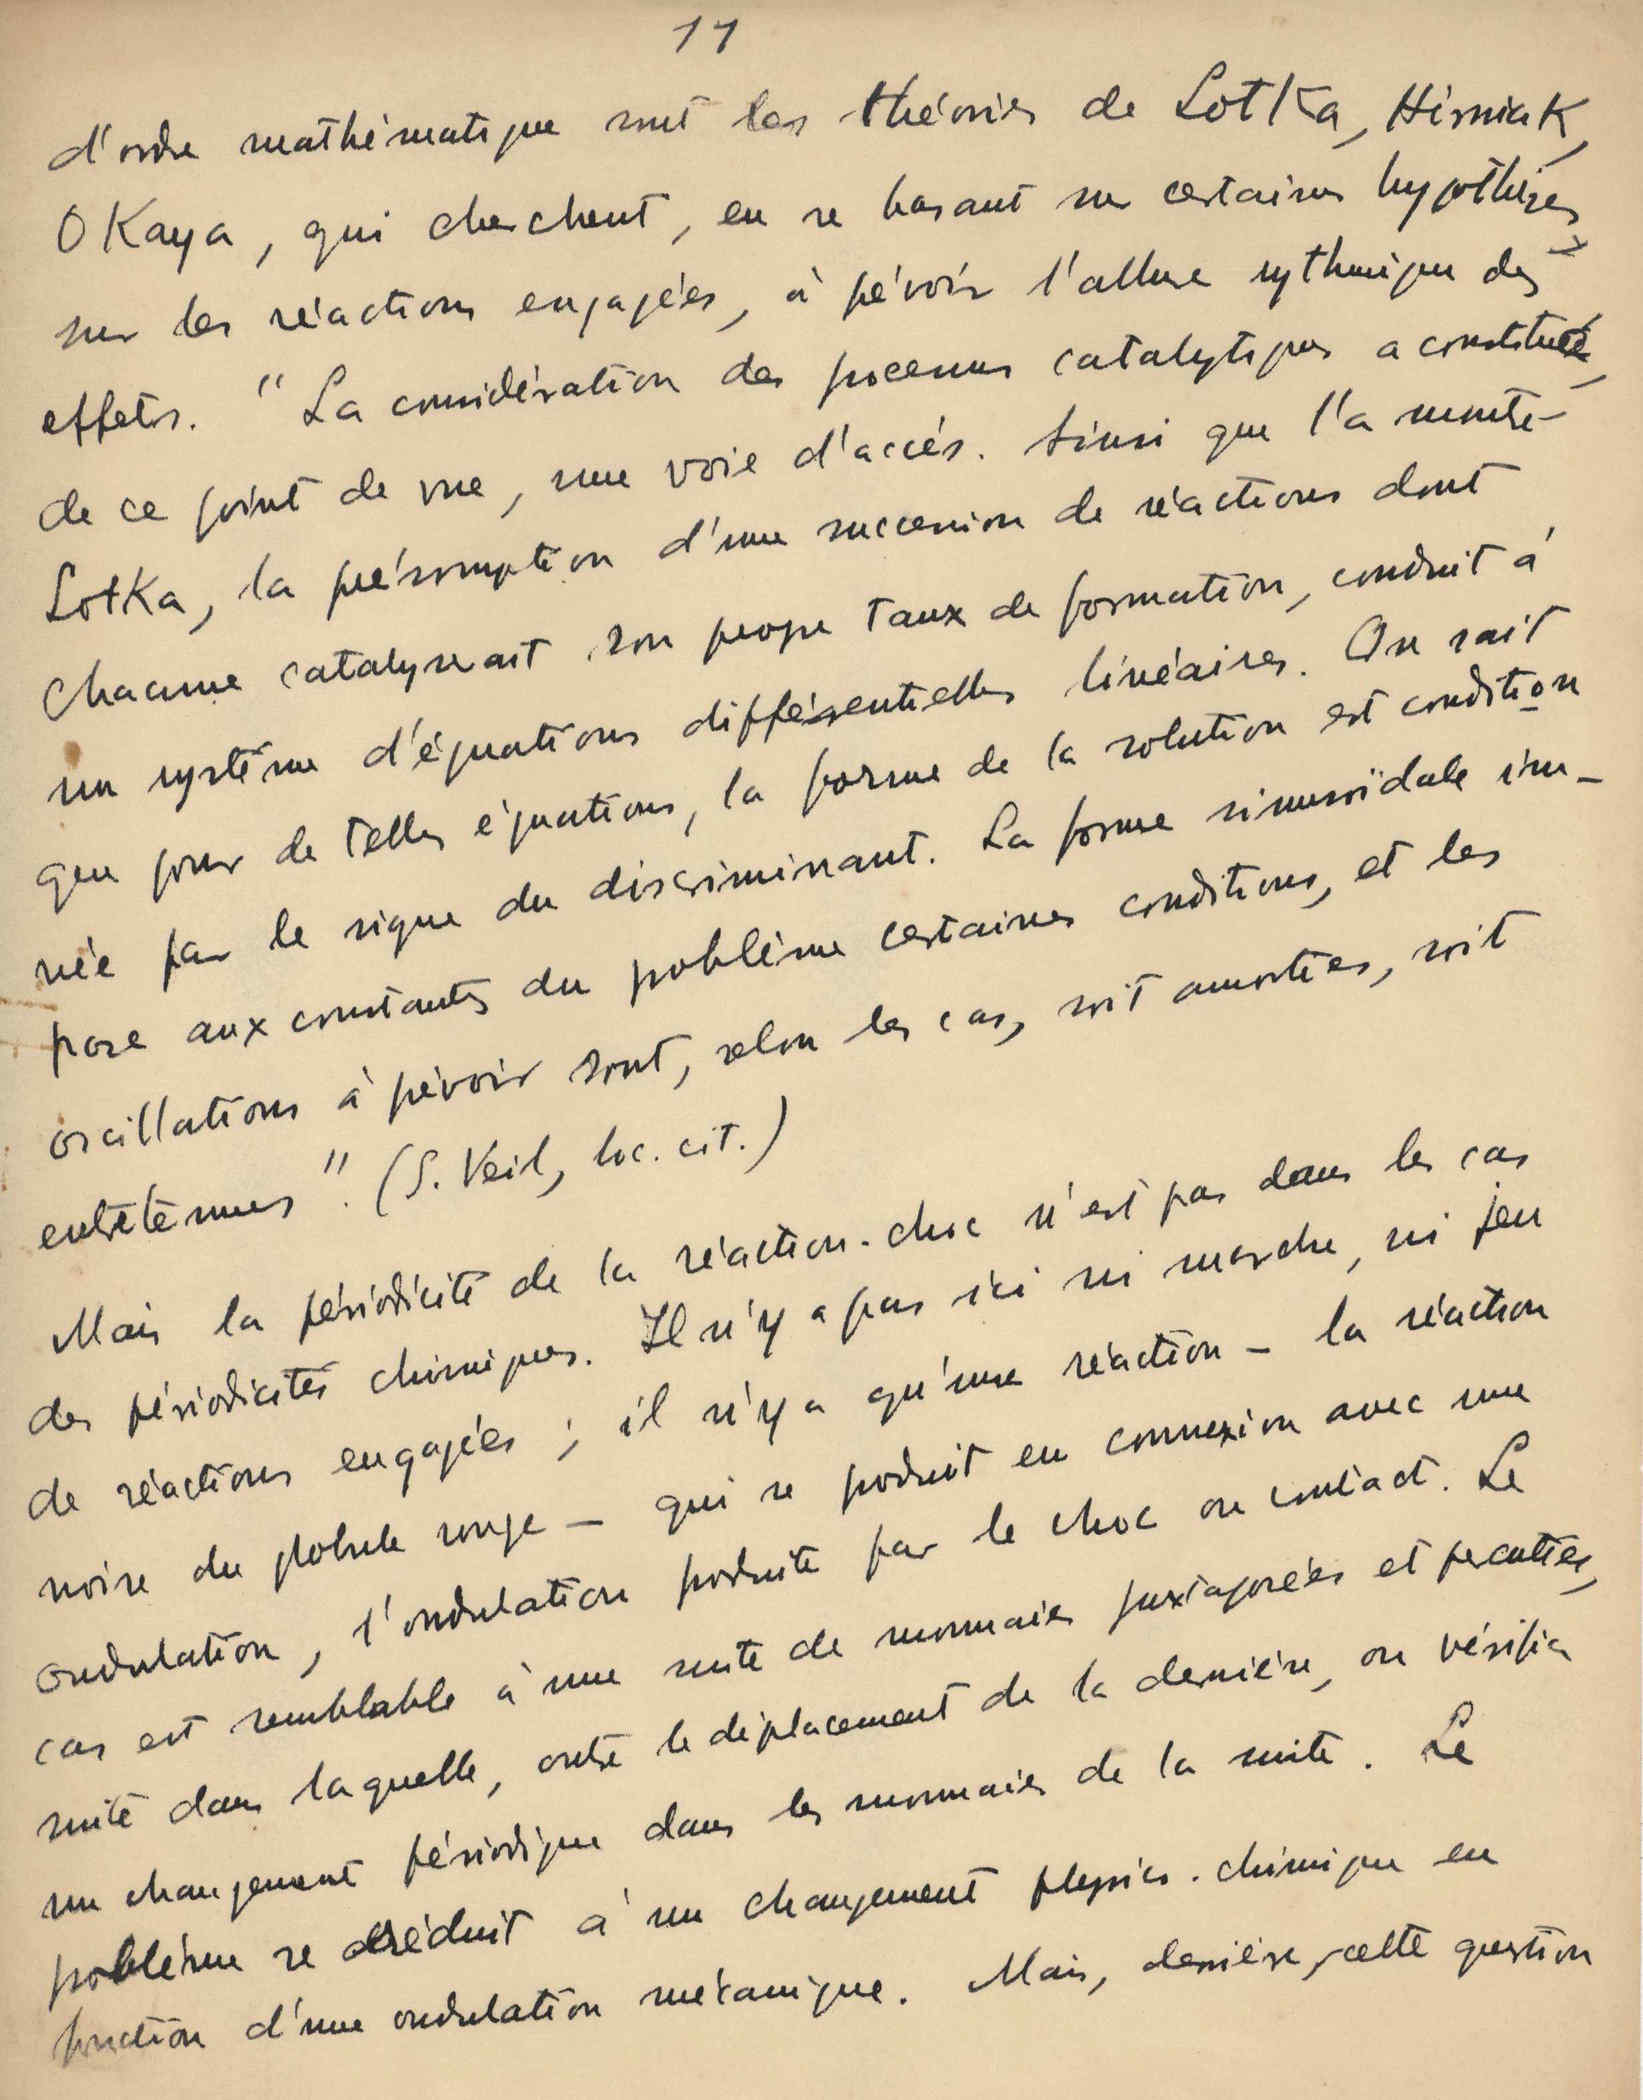 11
d'ordre mathématique sont les théories de Lotka, Hirniak,
Okaya, qui cherchent, en se basant sur certaines hypothèses
sur les réactions engagées, à prévoir l'allure rythmique des
effets. "La considération des processus catalytiques a constitué,
de ce point de vue, une voie d'accés. Ainsi que l'a montré
Lotka, la présomption d'une succession de réactions dont
chacune catalyserait son propre taux de formation, conduit à
un système d'équations différentielles linéaires. On sait
que pour de telles équations, la forme de la solution est condition
née par le signe du discriminant. La forme sinusoïdale im-
pose aux constantes du problème certaines conditions, et les
oscillations à prévoir sont, selon les cas, soit amorties, soit
entretenues". (S. Veil, loc. cit.)
Mais la périodicité de la réaction-choc n'est pas dans les cas
des périodicités chimiques. Il n'y a pas ici ni marche, ni jeu
de réactions engagées ; il n'y a qu'une réaction - la réaction
noire du globule rouge - qui se produit en connexion avec une
ondulation, l'ondulation produite par le choc ou contact. Le
cas est semblable à une suite de monnaies juxtaposées et percutées,
suite dans laquelle, outre le déplacement de la dernière, on vérifia
un changement périodique dans les monnaies de la suite. Le
problème se réduit à un changement physico-chimique en
fonction d'une ondulation mécanique. Mais, derrière cette question